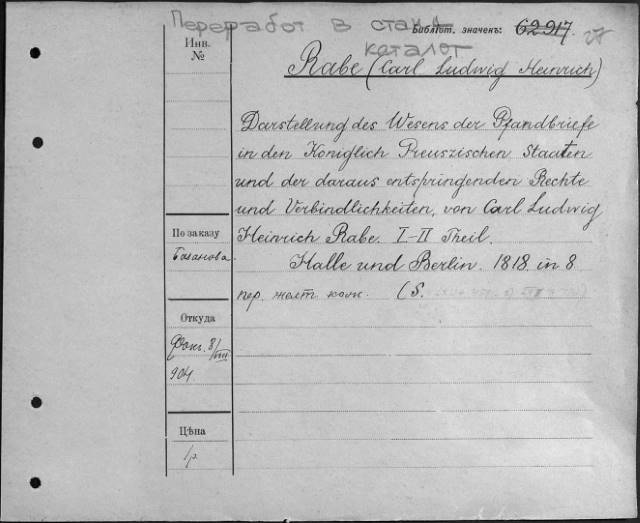 Переработ в стан
каталог
Библіот. значенъ: 62917.
Инв.
№
Rabe (Carl Ludwig Heinrich)
Darstellung des Wesens der Pfandbriefe
in den Königlich Preuszischen Staaten
und der daraus entspringenden Rechte
und Verbindlichkeiten, von Carl Ludwig
Heinrich Rabe. I-II Theil.
Halle und Berlin. 1818. in 8.
пер. желт. кож. (S.
По заказу
Базанова.
Откуда
8/VIII
904
Цѣна
1 р.